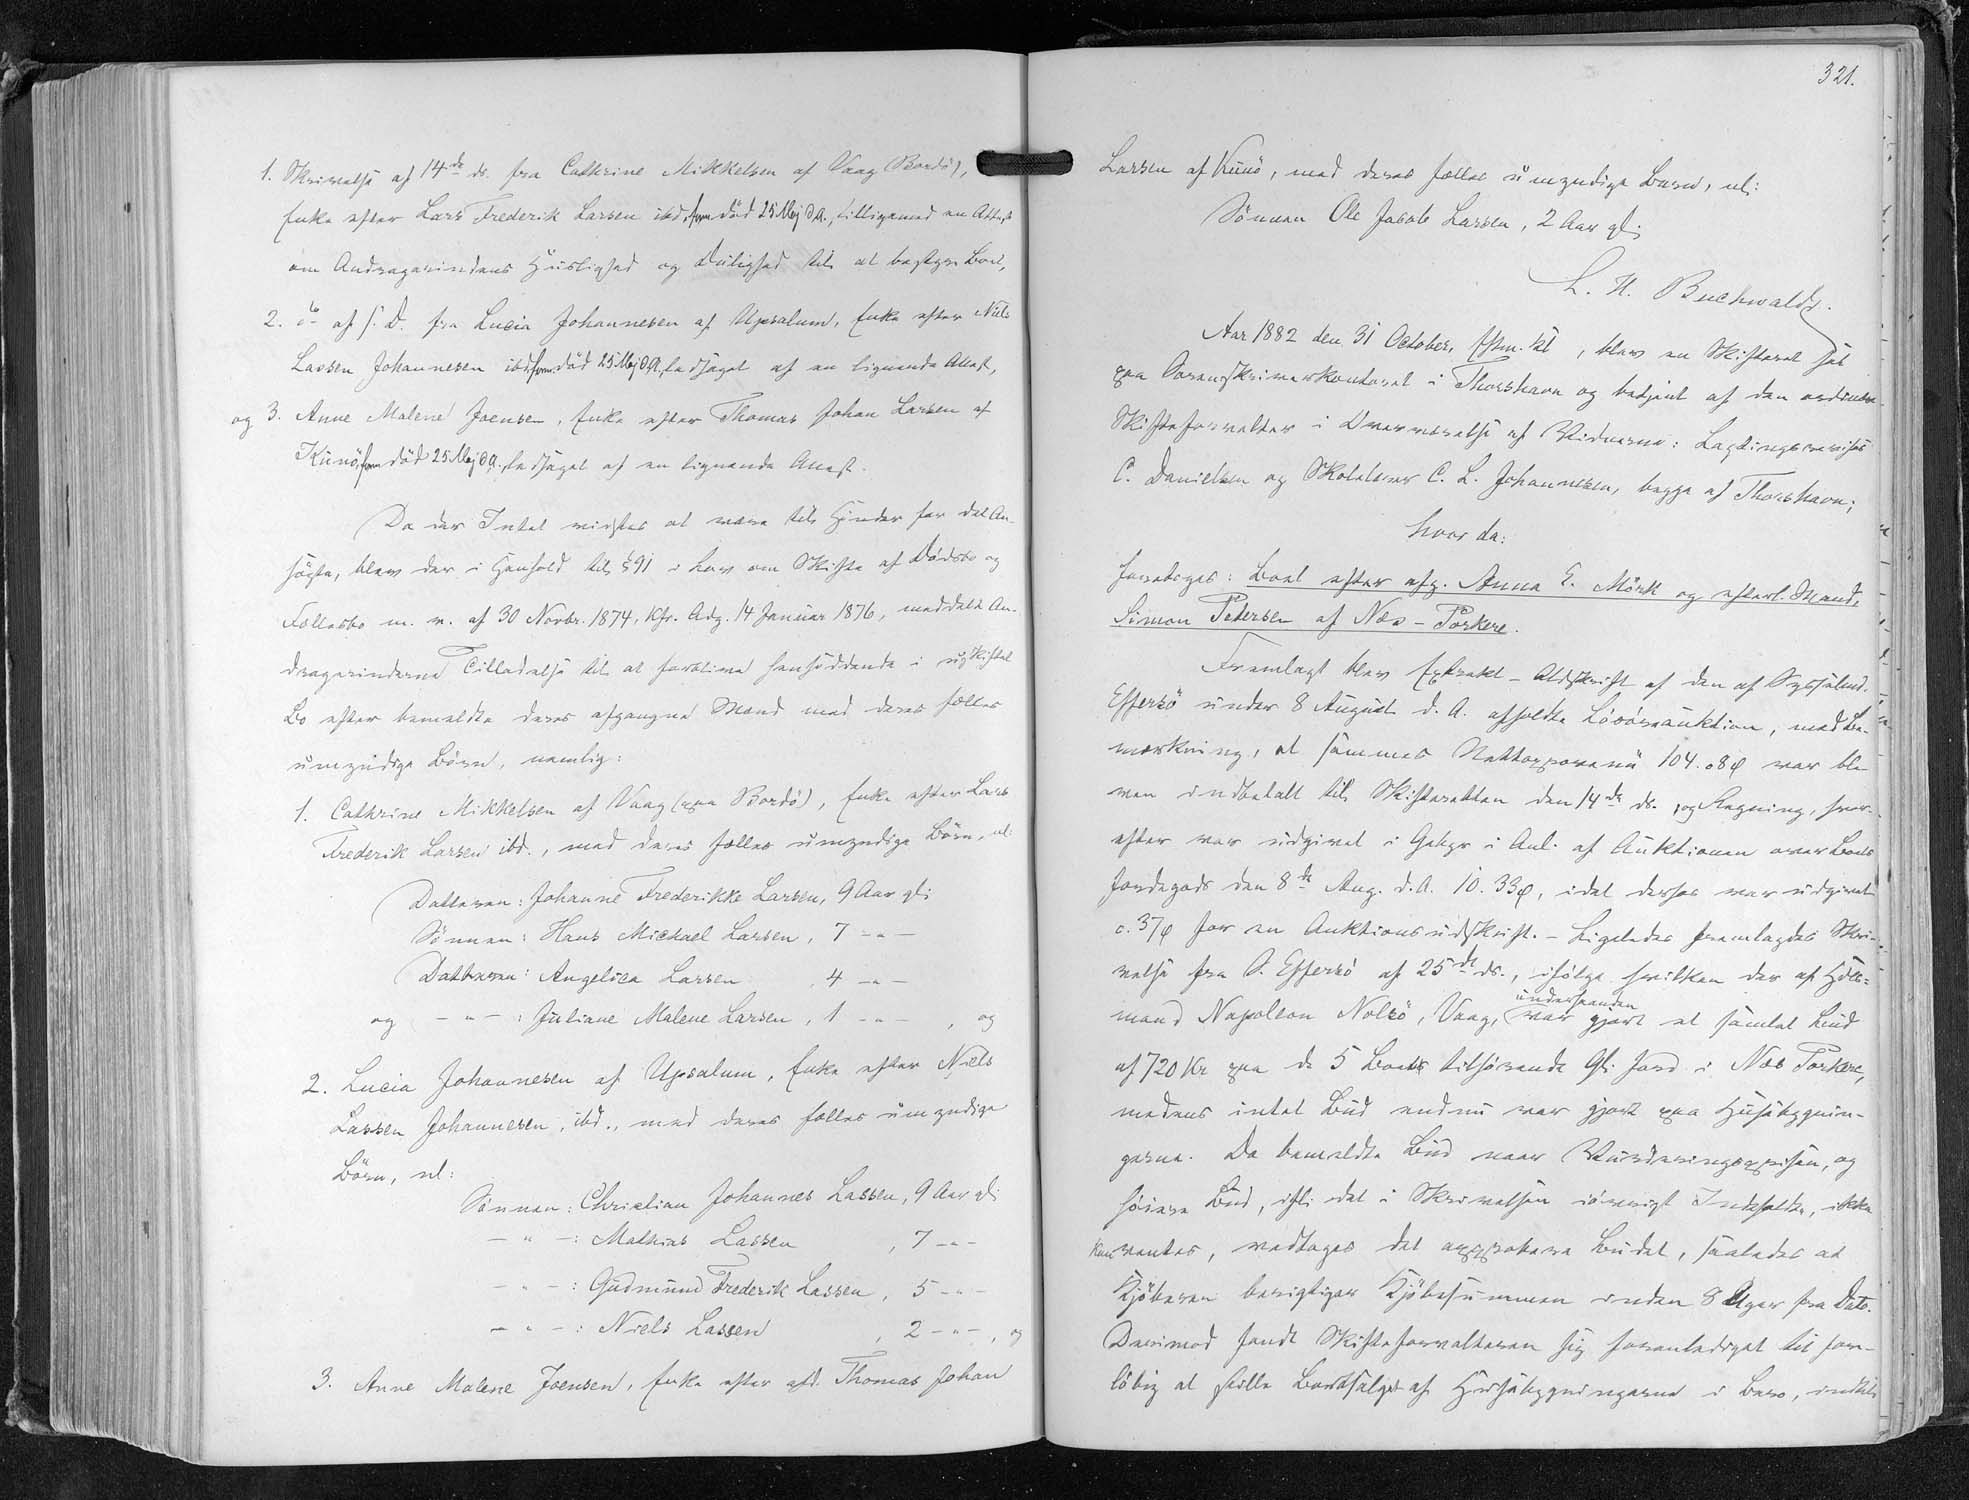 1. Skrivelse af 14de ds. fra Cathrine Mikkelsen af Vaag (Bordö),
Enke efter Lars Frederik Larsen ibd., som död 25 Maj d. A., tilligemed en Attest
om Andragerindens Huslighed og Duelighed til at bestyre Boet,
2. do af s. D. fra Lucia Johannesen af Upsalum, Enke efter Niels
Lassen Johannesen ibd., som död 25 Maj d. A., ledsaget af en lignende Attest,
og 3. Anne Malene Joensen, Enke efter Thomas Johan Larsen af
Kunö, som död 25 Maj d. A., ledsaget af en lignende Attest.
Da der Intet vidstes at være til Hinder for det An-
søgte, blev der i Henhold til § 91 i Lov om Skifte af Dödsbo og
Fællesbo m. v. af 30 Novbr. 1874, kfr. Adg. 14 Januar 1876, meddelt An-
dragerinderne Tilladelse til at forblive hensiddende i uskiftet
Bo efter bemeldte deres afgangne Mænd med deres fælles
umyndige Börn, nemlig:
1. Cathrine Mikkelsen af Vaag (paa Bordö), Enke efter Lars
Frederik Larsen ibd., med deres fælles umyndige Börn, nl:
Datteren: Johanne Frederikke Larsen, 9 Aar gl:
Sönnen: Hans Michael Larsen, 7 -"-
Datteren: Angelica Larsen , 4 -"-
og -"-: Juliane Malene Larsen, 1 -"-, og
2. Lucia Johannesen af Upsalum, Enke efter Niels
Lassen Johannesen, ibd., med deres fælles umyndige
Börn, nl:
Sönnen: Christian Johannes Lassen, 9 Aar gl:
-"-: Mathias Lassen , 7 -"-
-"-: Gudmund Frederik Lassen, 5 -"-
-"-: Niels Lassen , 2 -"-, og
3. Anne Malene Joensen, Enke efter afd. Thomas Johan
321.
Larsen af Kunö, med deres fælles umyndige Barn, nl:
Sönnen Ole Jacob Larsen, 2 Aar gl:
L. H. Buchwaldt.
Aar 1882 den 31 October, Efm. Kl , blev en Skifteret sat
paa Sorenskriverkontoret i Thorshavn og betjent af den ordinære
Skifteforvalter i Overværelse af Vidnerne: Lagtingsrevisor
C. Danielsen og Skolelærer C. L. Johannesen, begge af Thorshavn;
hvor da:
foretoges: Boet efter afg. Anna E. Mörk og efterl. Mand,
Simon Petersen af Næs - Porkere.
Fremlagt blev Extrakt-Udskrift af den af Sysselmd.
Effersö under 8 August d. A. afholdte Lösöreauktion, med Be-
mærkning, at sammes Nettoprovenu 104. 08 ø var ble-
ven indbetalt til Skifteretten den 14de ds., og Regning, hvor-
efter var udgivet i Gebyr i Anl. af Auktionen over Boets
Jordegods den 8de Aug. d. A. 10. 33 ø, idet derhos var udgivet
c. 37 ø for en Auktionsudskrift. - Ligeledes fremlagdes Skri-
velse fra S. Effersö af 25de ds., ifölge hvilken der af Hdls-
mand Napoleon Nolsö, Vaag, underhaanden var gjort et samlet Bud
af 720 Kr paa de 5 Boets tilhörende Gl: Jord i Næs Porkere,
medens intet Bud endnu var gjort paa Husebygnin-
gerne. Da bemeldte Bud naar Vurderingsprisen, og
höiere Bud, ifl. det i Skrivelsen iövrigt Indeholdte, ikke
kan ventes, vedtoges det approbere Budet, saaledes at
Kjöberen berigtiger Kjöbesummen inden 8 Uger fra Dato.
Derimod fandt Skifteforvalteren sig foranlediget til fore-
löbig at stille Bortsalget af Husebygningerne i Bero, indtil